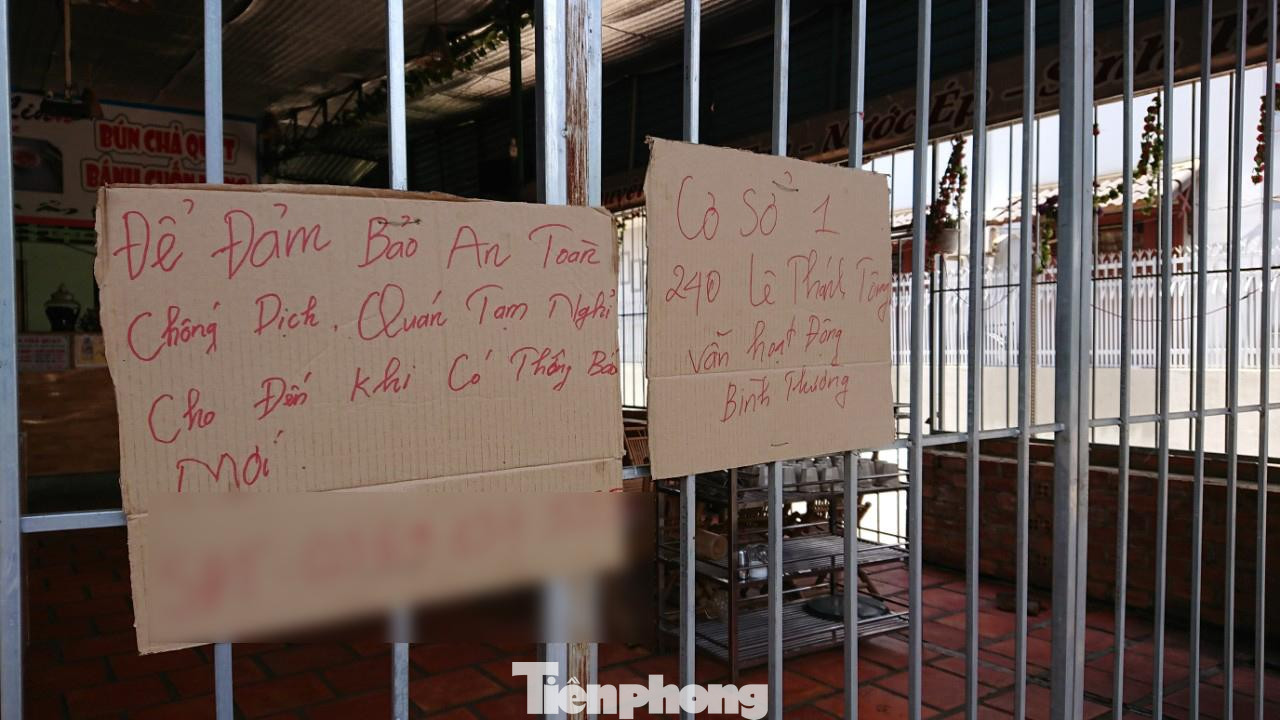 BÚN CHẢ QUẠT
BÁNH CUỐN
Nước Ép - Sinh Tố
Để Đảm Bảo An Toàn
Chống Dịch. Quán Tạm Nghỉ
Cho Đến Khi Có Thông Báo
Mới
Cơ Sở 1
240 Lê Thánh Tông
Vẫn hoạt Động
Bình Thường
Tiênphong